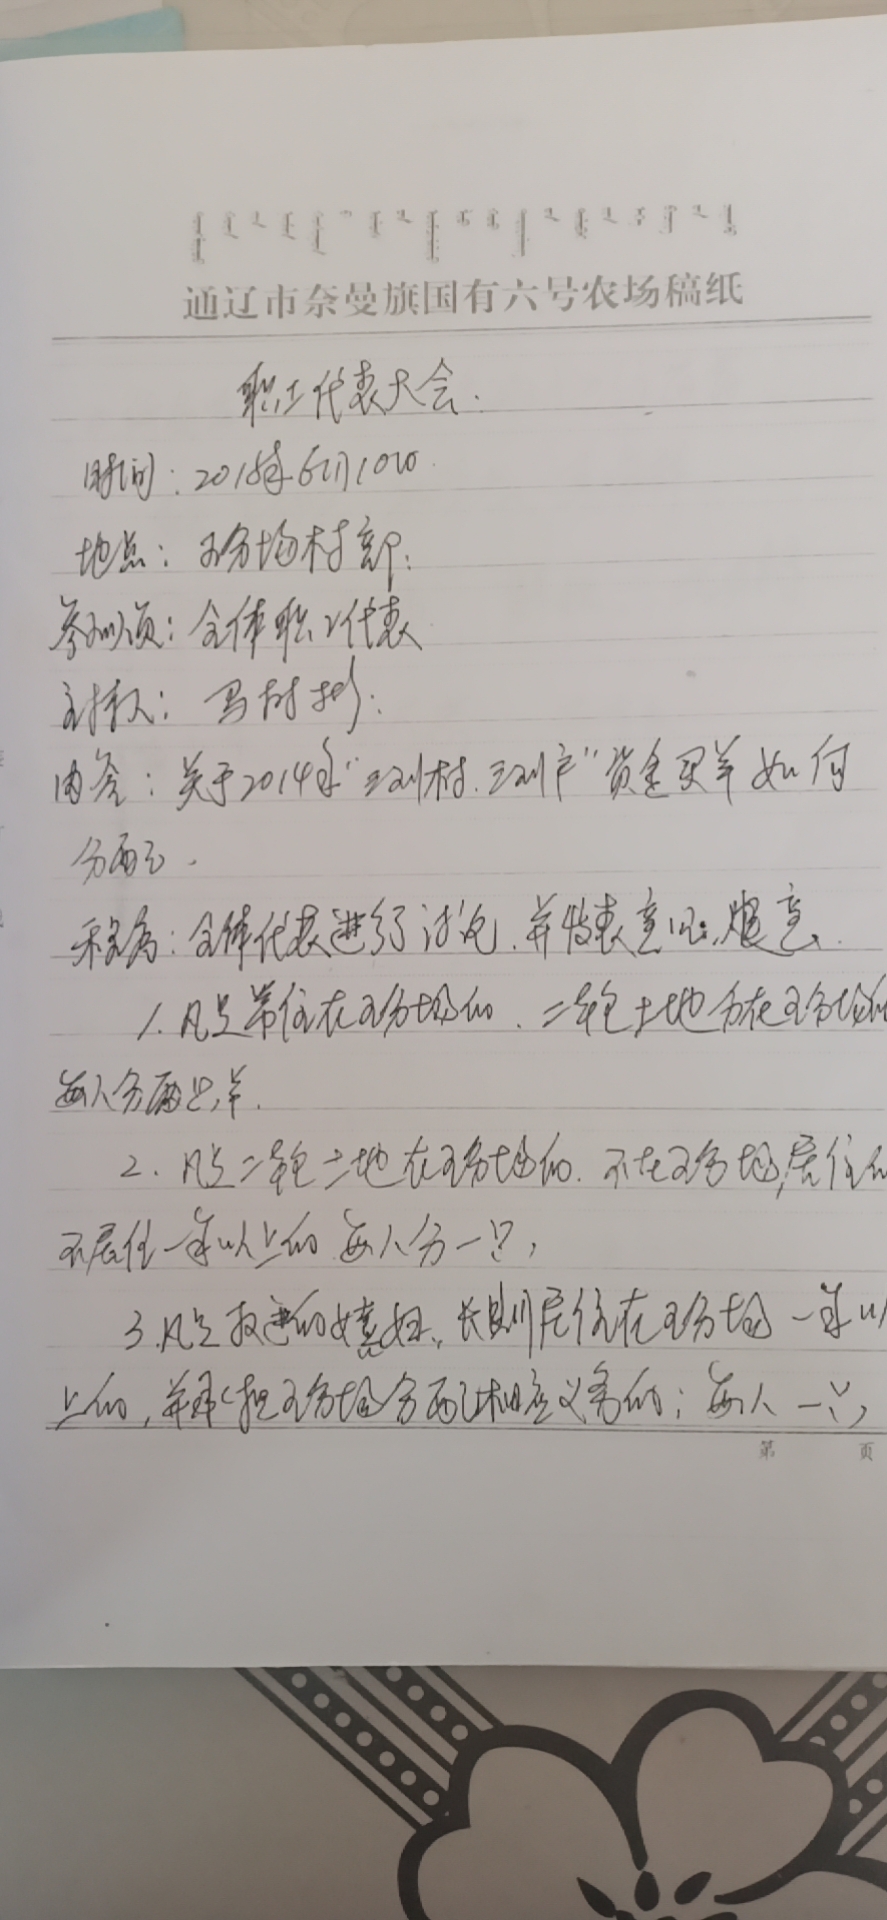 通辽市奈曼旗国有六号农场稿纸
职工代表大会.
时间:2018年6月10日.
地点:五分场村部.
参加人员:全体职工代表
主持人:马树
内容:关于2014年"三到村.三到户"资金买羊如何
分配.
全体代表进行讨论.并发表意见.
1.凡是常住在五分场的.二轮土地分在五分场的
每人分两只羊.
2.凡是二轮土地在五分场的.不在五分场,居住的
不居住一年以上的每人分一只,
3.凡是娶进的媳妇.长期居住在五分场一年以
上的,并承担五分场分配相应义务的;每人一只,
第 页